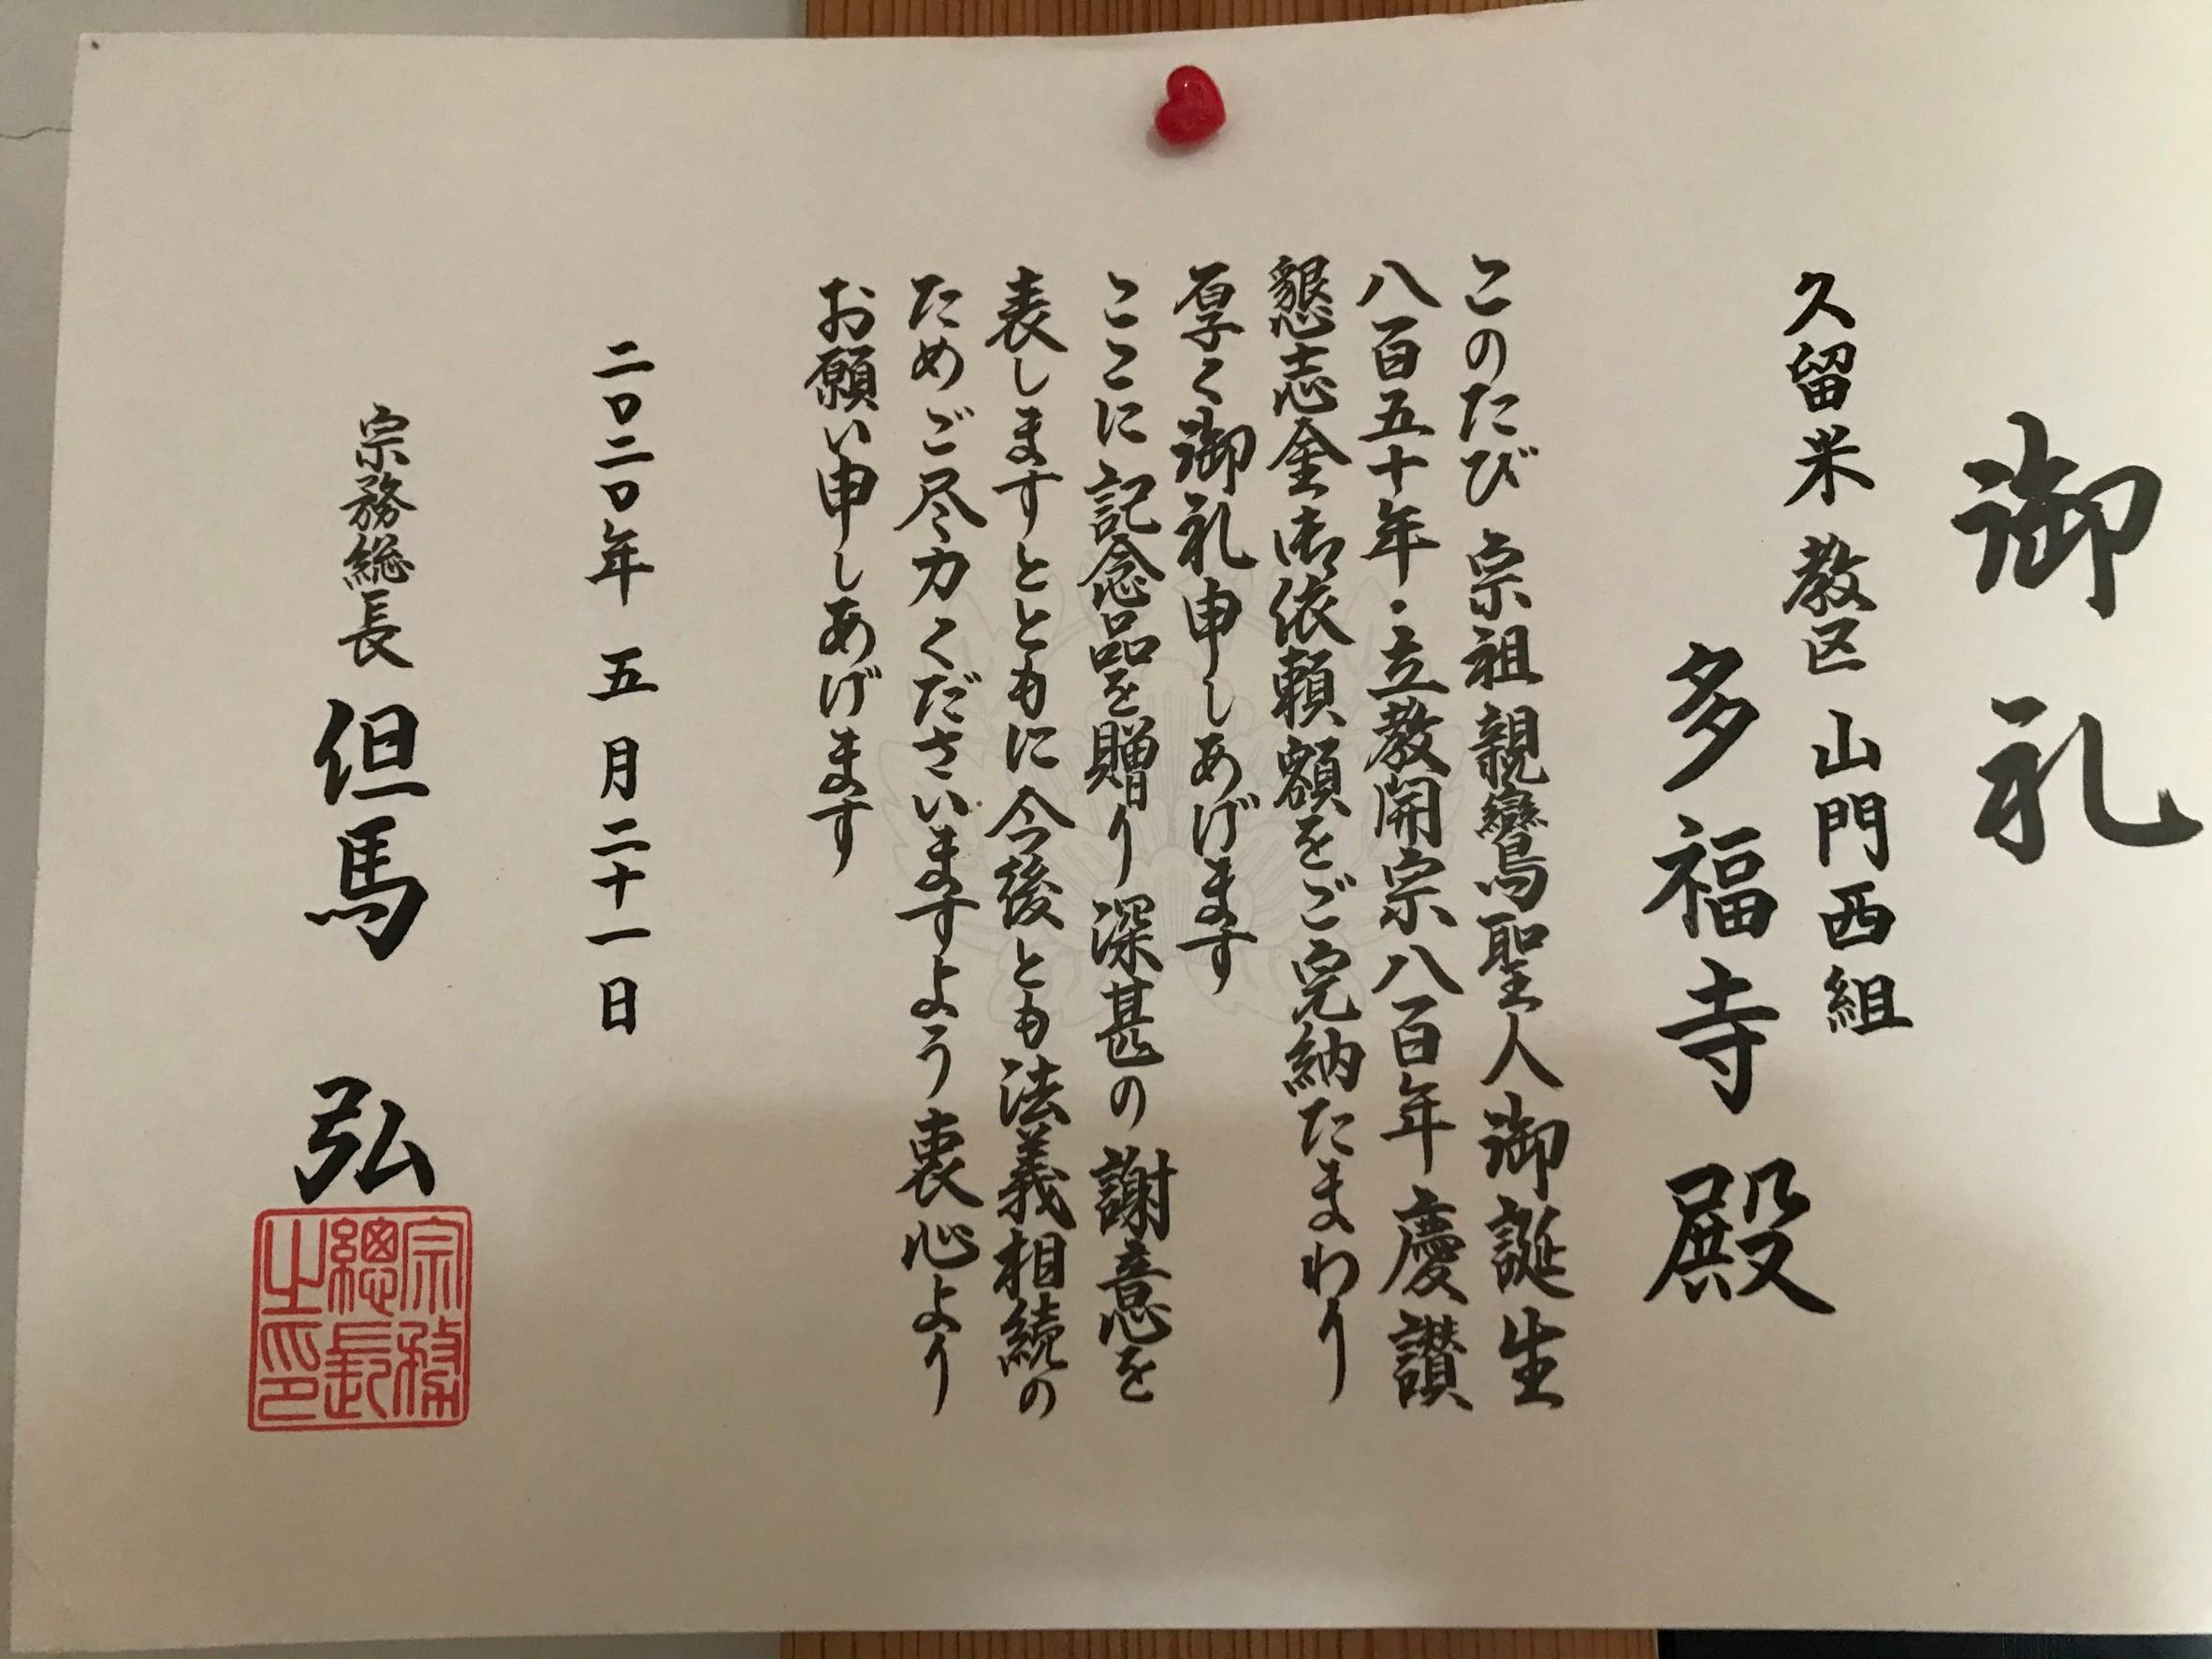 御礼
久留米教区 山門西組
多福寺 殿
このたび 宗祖親鸞聖人御誕生
八百五十年・立教開宗八百年慶讃
懇志金御依頼額をご完納たまわり
厚く御礼申しあげます
ここに記念品を贈り深甚の謝意を
表しますとともに今後とも法義相続の
ためご尽力くださいますよう衷心より
お願い申しあげます
二〇二〇年 五月二十一日
宗務総長 但馬 弘
宗務
總長
之印